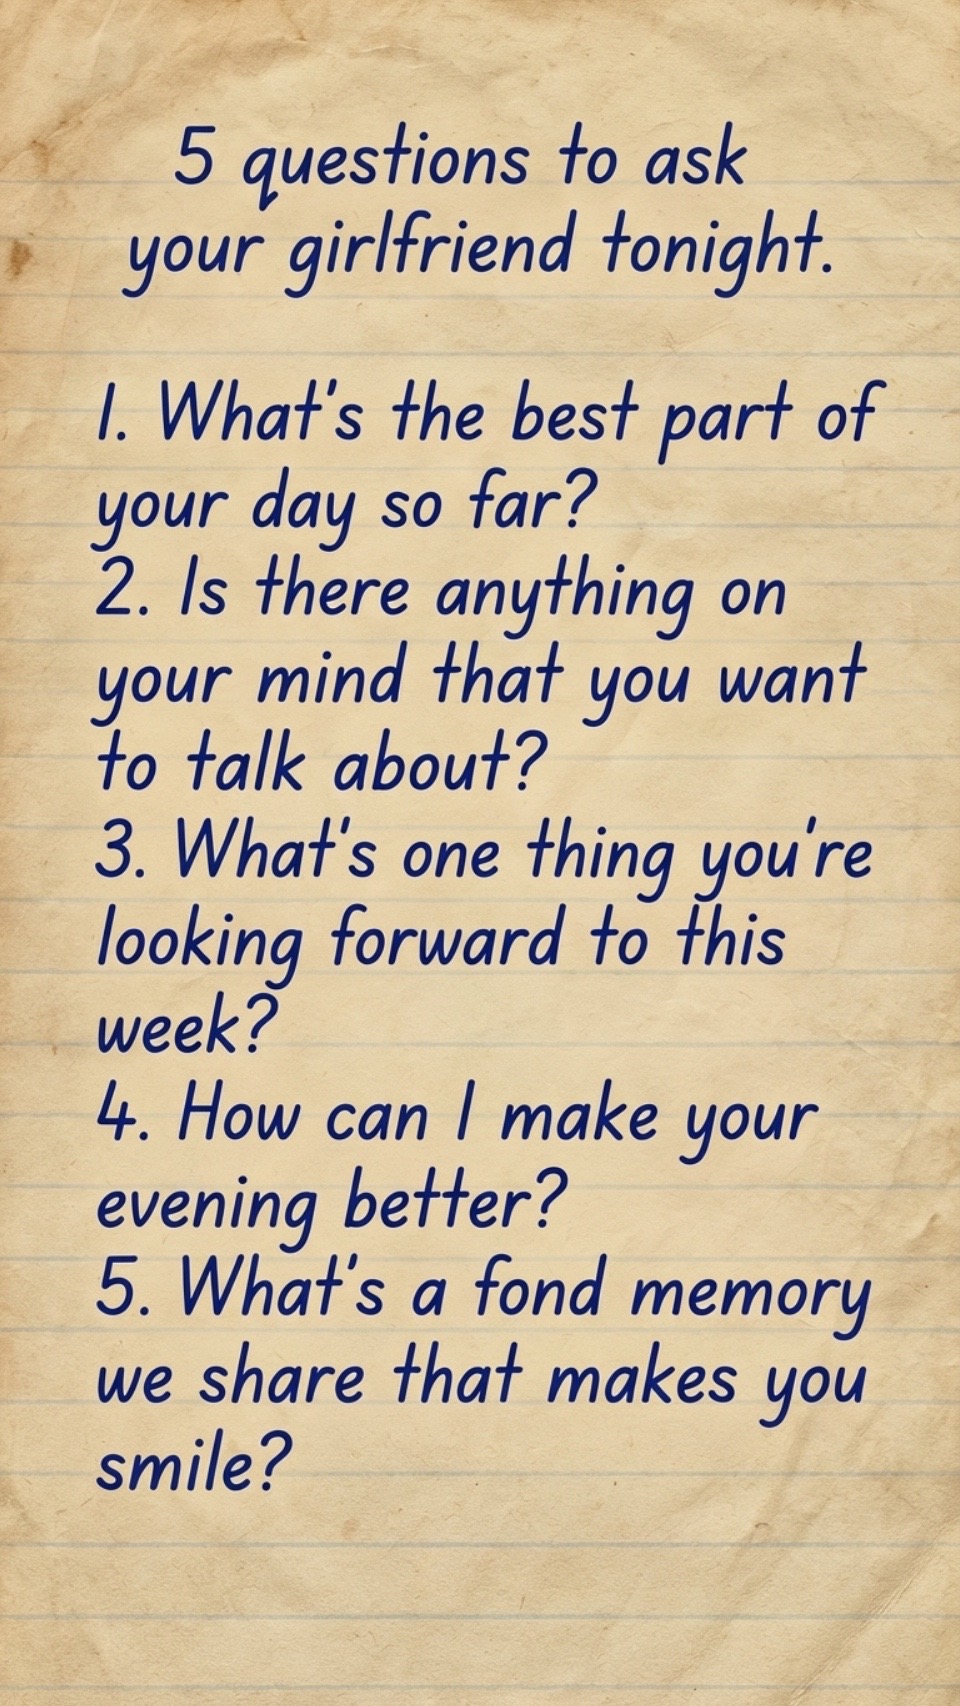 5 questions to ask
your girlfriend tonight.
1. What's the best part of
your day so far?
2. Is there anything on
your mind that you want
to talk about?
3. What's one thing you're
looking forward to this
week?
4. How can I make your
evening better?
5. What's a fond memory
we share that makes you
smile?